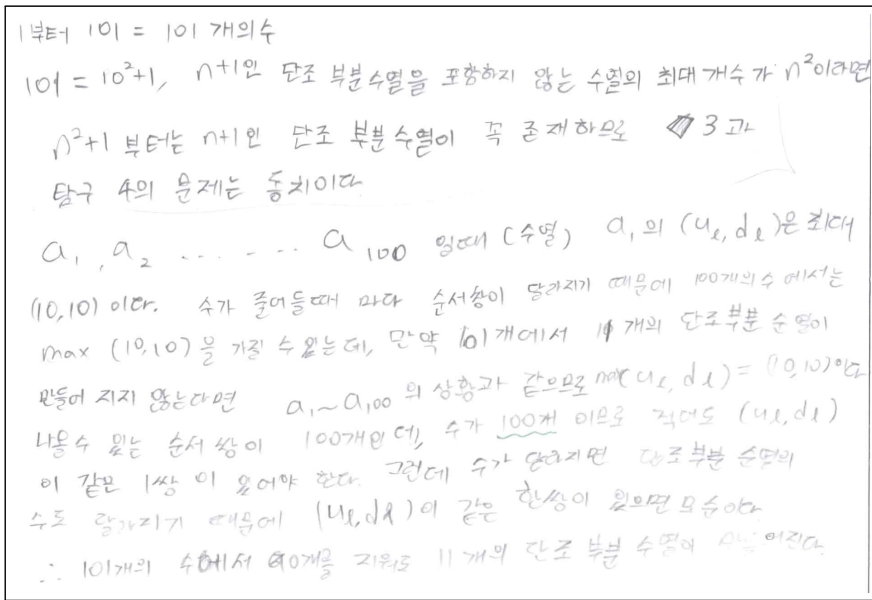 1부터 101 = 101 개의수
101 = 10²+1, n+1인 단조 부분수열을 포함하지 않는 수열의 최대 개수가 n²이라면
n²+1 부터는 n+1인 단조 부분수열이 꼭 존재하므로 3과
탐구 4의 문제는 동치이다
a₁, a₂ ... ... a₁₀₀ 일때 (수열) a₁의 (u_l, d_l)은 최대
(10,10) 이다. 수가 줄어들때 마다 순서쌍이 달라지기 때문에 100개의수 에서는
max (10,10)을 가질 수 있는데, 만약 101개에서 11개의 단조부분 수열이
만들어 지지 않는다면 a₁~a₁₀₀의 상황과 같으므로 max(u_l, d_l) = (10,10)이다
나올수 있는 순서 쌍이 100개인데, 수가 100개 이므로 적어도 (u_l, d_l)
이 같은 1쌍이 있어야 한다. 그런데 수가 달라지면 단조부분 수열의
수도 달라지기 때문에 (u_l, d_l)이 같은 한쌍이 있으면 모순이다
∴ 101개의 수에서 90개를 지워도 11개의 단조 부분 수열이